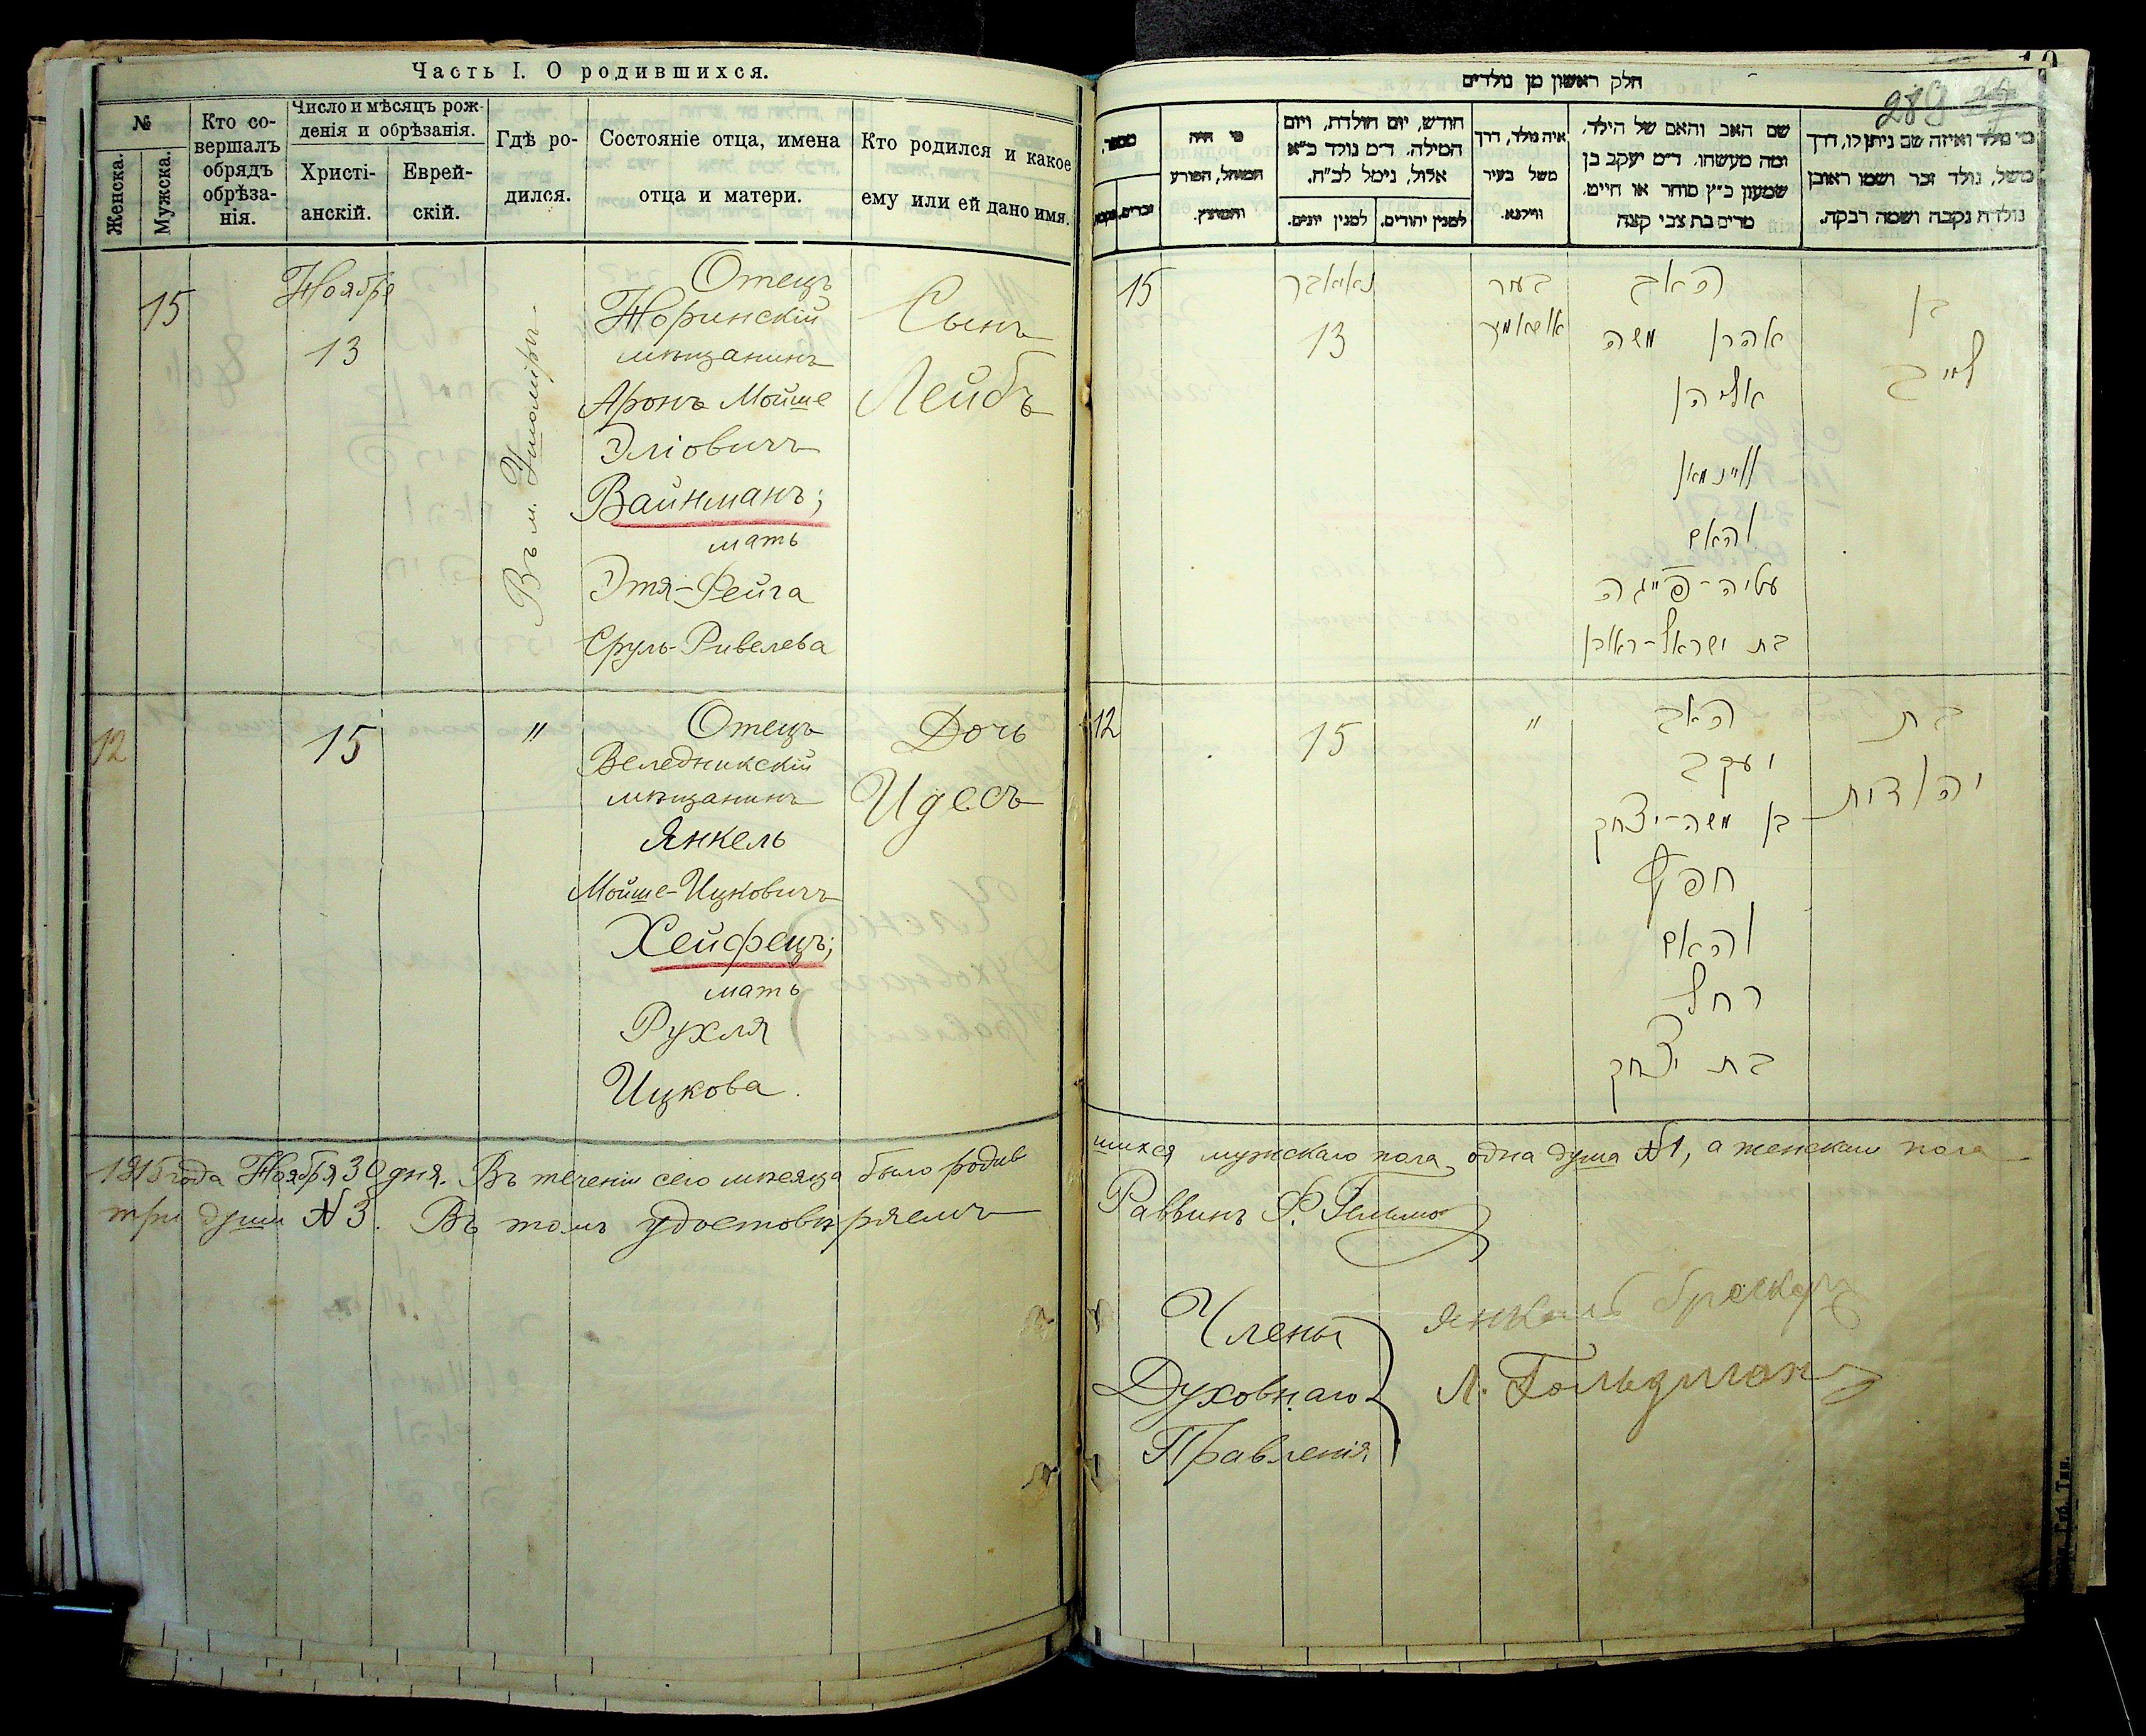 Часть I. О родившихся.
№
Женска.
Мужска.
Кто со-
вершалъ
обрядъ
обрѣза-
нія.
Число и мѣсяцъ рож-
денія и обрѣзанія.
Христі-
анскій.
Еврей-
скій.
Гдѣ ро-
дился.
Состояніе отца, имена
отца и матери.
Кто родился и какое
ему или ей дано имя.
15
Ноября
13
Въ м. Ушомірѣ
Отецъ
Норинскій
мѣщанинъ
Аронъ Мойше
Эліовичъ
Вайнманъ;
мать
Этя-Фейга
Сруль-Ривелева
Сынъ
Лейбъ
12
15
"
Отецъ
Веледникскій
мѣщанинъ
Янкель
Мойше-Ицковичъ
Хейфецъ;
мать
Рухля
Ицкова.
Дочь
Идесъ
1915 года Ноября 30 дня. Въ теченіи сего мѣсяца было родив
три души № 3. Въ томъ удостовѣряемъ
חלק ראשון מן נולדים
289
מספר.
זכרים.
מי היה
המוהל, הפורע
והמוצץ.
חודש, יום הולדת, ויום
המילה. ד״מ נולד כ״א
אלול, נימל לכ״ח.
למנין יהודים.
למנין יונים.
איה נולד, דרך
משל בעיר
ווילנא.
שם האב והאם של הילד,
ומה מעשהו. ד״מ יעקב בן
שמעון כ״ץ סוחר או חייט.
מרים בת צבי קצה
מי נולד ואיזה שם ניתן לו, דרך
משל, נולד זכר ושמו ראובן
נולדה נקבה ושמה רבקה.
15
נאיאבר
13
בעיר
אושאמיר
האב
אהרן משה
אליהו
וויינמאן
והאם
עטיה-פייגה
בת ישראל-ראובן
בן
לייב
12
15
"
האב
יעקב
בן משה-יצחק
חפץ
והאם
רחל
בת יצחק
בת
יהודית
шихся мужскаго пола одна душа №1, а женскаго пола
Раввинъ Ф.
Члены
Духовнаго
Правленія
Янкель
Л. Гольдманъ
Губ. Тип.